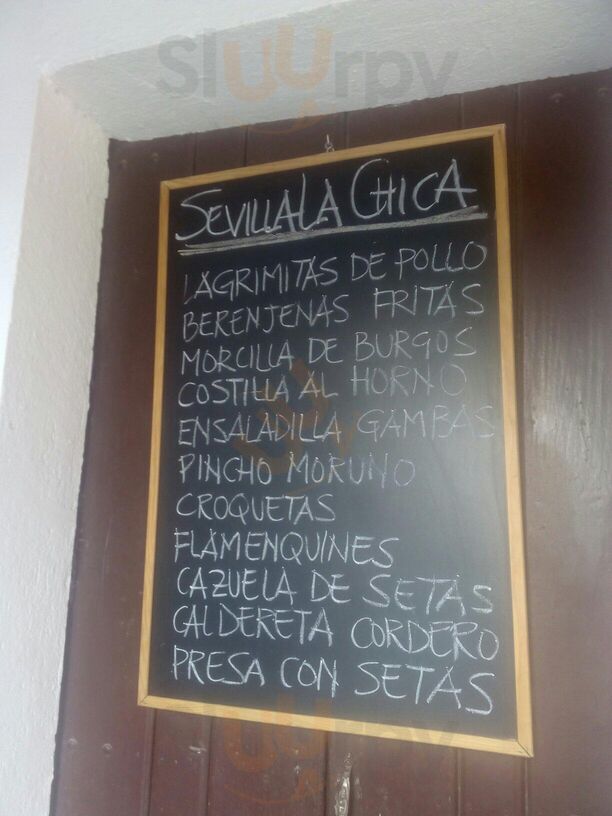 Sluurpy
SEVILLA LA CHICA
LAGRIMITAS DE POLLO
BERENJENAS FRITAS
MORCILLA DE BURGOS
COSTILLA AL HORNO
ENSALADILLA GAMBAS
PINCHO MORUNO
CROQUETAS
FLAMENQUINES
CAZUELA DE SETAS
CALDERETA CORDERO
PRESA CON SETAS
Sluurpy